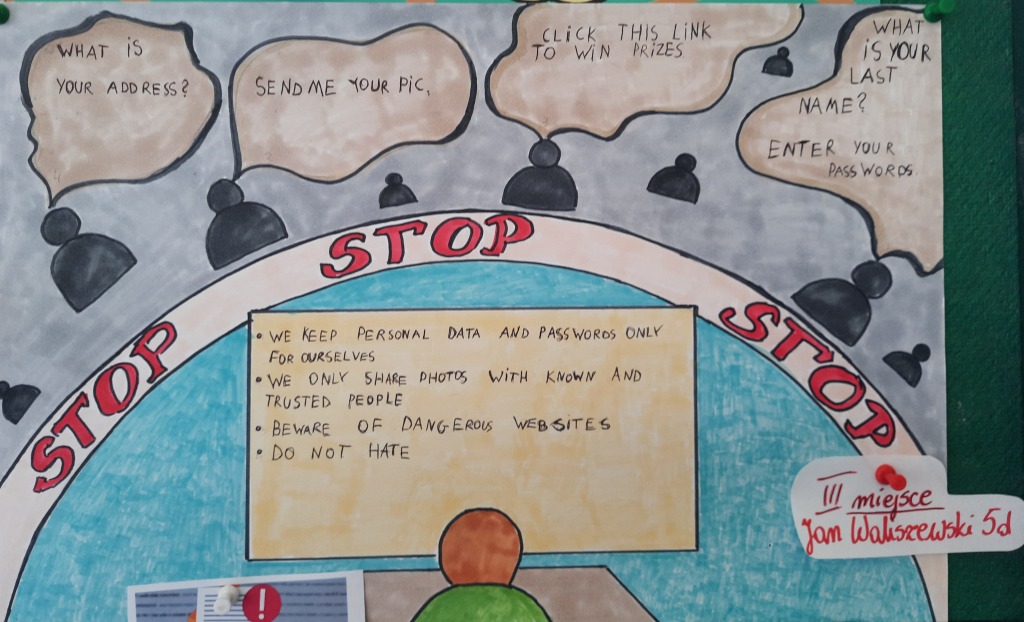 WHAT IS
YOUR ADDRESS?
SEND ME YOUR PIC,
CLICK THIS LINK
TO WIN PRIZES
WHAT
IS YOUR
LAST
NAME?
ENTER YOUR
PASSWORDS
STOP
STOP
STOP
• WE KEEP PERSONAL DATA AND PASSWORDS ONLY
FOR OURSELVES
• WE ONLY SHARE PHOTOS WITH KNOWN AND
TRUSTED PEOPLE
• BEWARE OF DANGEROUS WEBSITES
• DO NOT HATE
III miejsce
Jan Waliszewski 5d
!